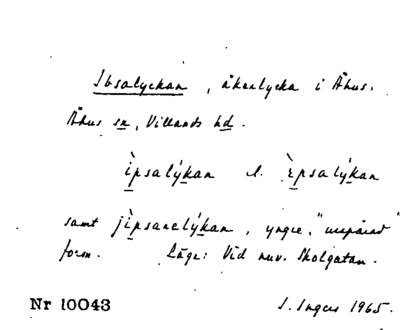 Ibsalyckan, åkerlycka i Åhus.
Åhus sn, Villands hd.
ìpsalýkan l. èpsalýkan
samt jìpsanelýkan, yngre, "uupärad"
form. Läge: Vid nuv. Skolgatan.
Nr 10043 S. Ingers 1965.